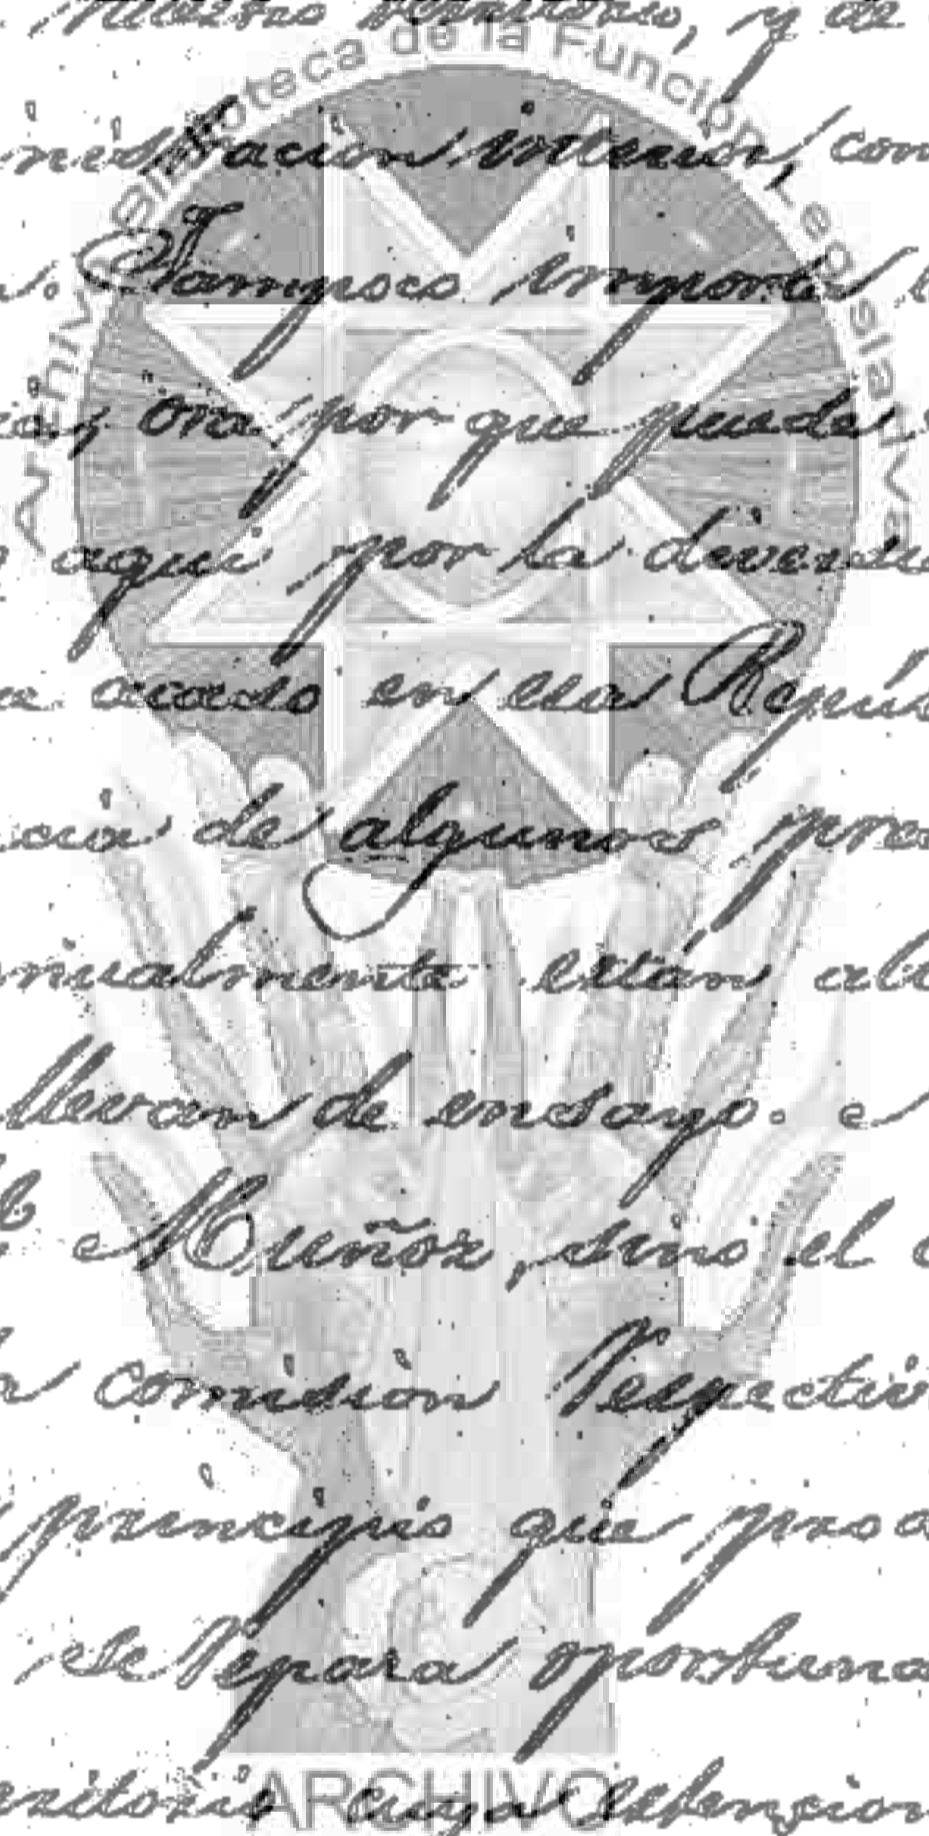 nuestro territorio, y de
Archivo Biblioteca de la Función Legislativa
nistracion interior, con
Tampoco importa
ora por que puede
aqui por la diversi
acaso en esa Repúb
cia de algunos pres
nualmente están ab
llevan de ensayo. e
Muñoz, sino el
comision respectiv
principio que proc
se separa oportuna
erritorio cuya estension
ARCHIVO